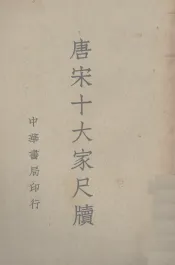 唐宋十大家尺牘
中華書局印行